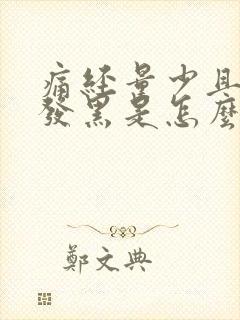 痛經量少且
發黑是怎麼
鄭文典